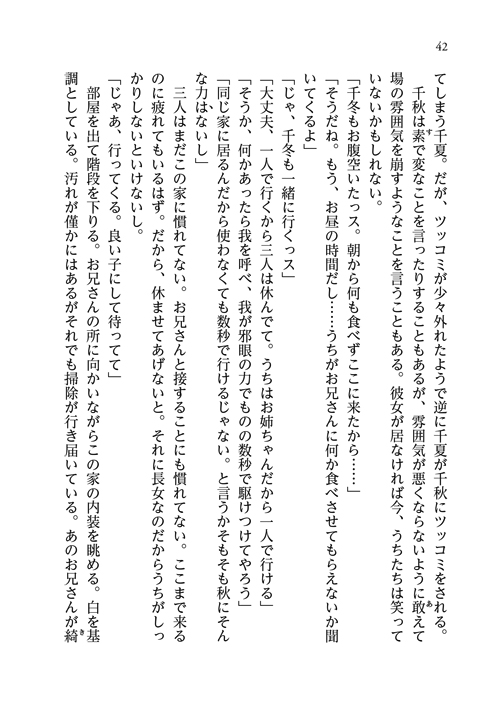 42
てしまう千夏。だが、ツッコミが少々外れたようで逆に千夏が千秋にツッコミをされる。
千秋は素で変なことを言ったりすることもあるが、雰囲気が悪くならないように敢えて
場の雰囲気を崩すようなことを言うこともある。彼女が居なければ今、うちたちは笑って
いないかもしれない。
「千冬もお腹空いたっス。朝から何も食べずここに来たから……」
「そうだね。もう、お昼の時間だし……うちがお兄さんに何か食べさせてもらえないか聞
いてくるよ」
「じゃ、千冬も一緒に行くっス」
「大丈夫、一人で行くから三人は休んでて。うちはお姉ちゃんだから一人で行ける」
「そうか、何かあったら我を呼べ、我が邪眼の力でものの数秒で駆けつけてやろう」
「同じ家に居るんだから使わなくても数秒で行けるじゃない。と言うかそもそも秋にそん
な力はないし」
三人はまだこの家に慣れてない。お兄さんと接することにも慣れてない。ここまで来る
のに疲れてもいるはず。だから、休ませてあげないと。それに長女なのだからうちがしっ
かりしないといけないし。
「じゃあ、行ってくる。良い子にして待ってて」
部屋を出て階段を下りる。お兄さんの所に向かいながらこの家の内装を眺める。白を基
調としている。汚れが僅かにはあるがそれでも掃除が行き届いている。あのお兄さんが綺